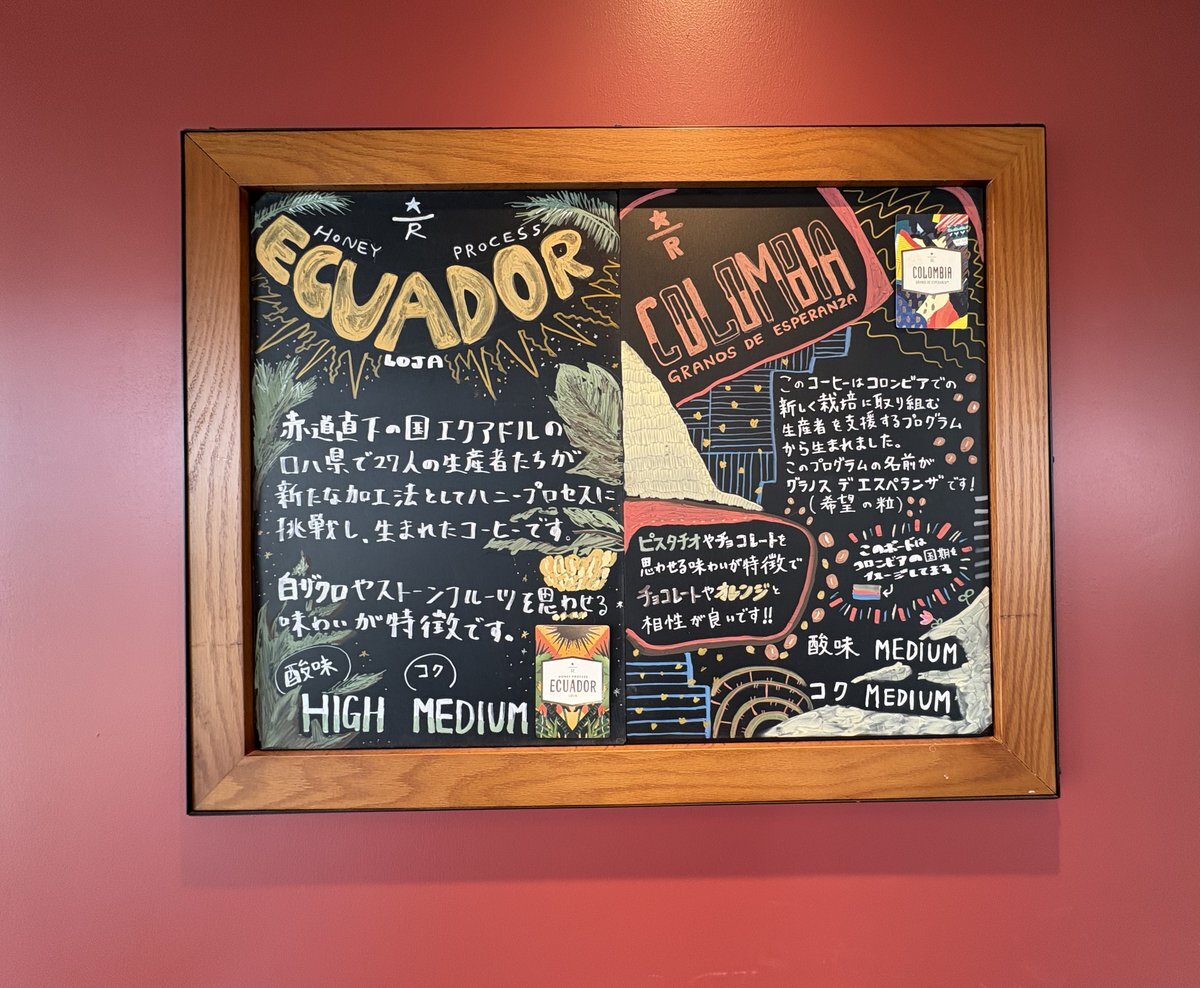 R
HONEY PROCESS
ECUADOR
LOJA
赤道直下の国エクアドルの
ロハ県で27人の生産者たちが
新たな加工法としてハニープロセスに
挑戦し、生まれたコーヒーです。
白ザクロやストーンフルーツを思わせる
味わいが特徴です。
酸味 コク
HIGH MEDIUM
ECUADOR
R
COLOMBIA
GRANOS DE ESPERANZA
COLOMBIA
GRANOS DE ESPERANZA
このコーヒーはコロンビアでの
新しく栽培に取り組む
生産者を支援するプログラム
から生まれました。
このプログラムの名前が
グラノス デ エスペランザです!
(希望の粒)
ピスタチオやチョコレートを
思わせる味わいが特徴で
チョコレートやオレンジと
相性が良いです!!
このボードは
コロンビアの国期を
イメージしてます
酸味 MEDIUM
コク MEDIUM